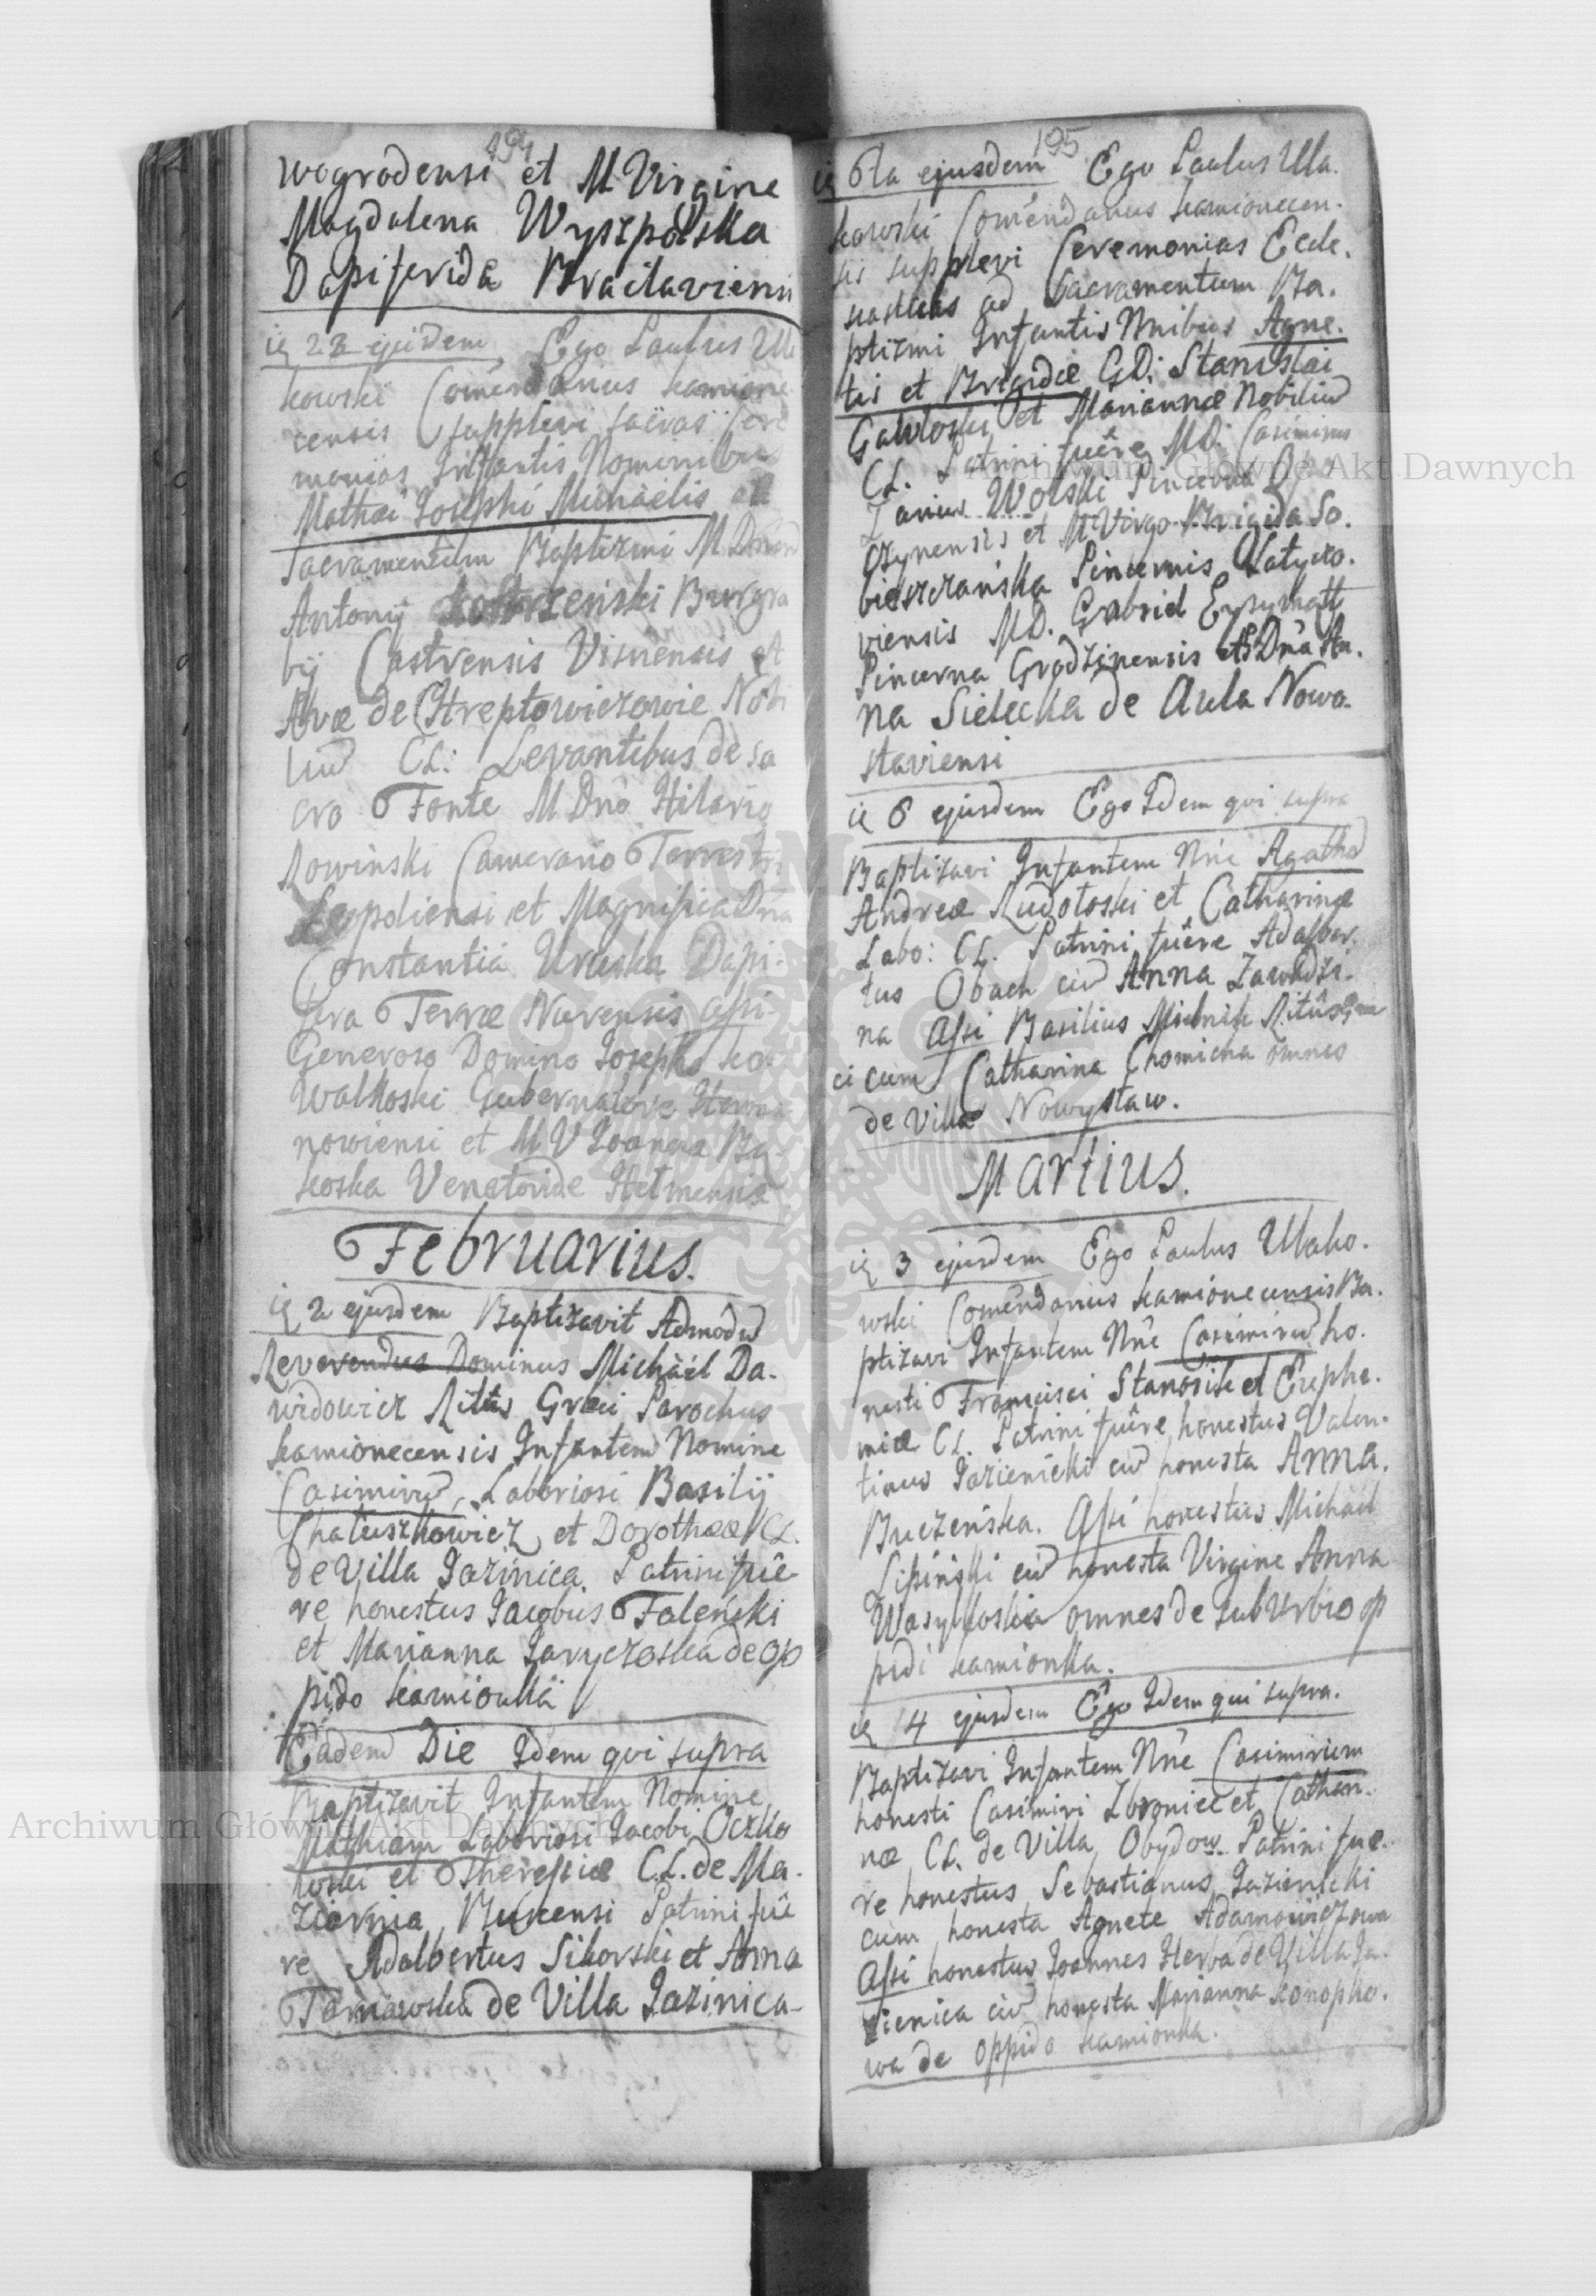 194
wogrodensi et M Virgine
Magdalena Wyszpolska
Dapiferida Braclaviensi
23 ejusdem Ego Paulus Ula
kowski Comendarius kamione
censis supplevi sacras Cere
monias Infantis Nominibus
Mathæi Josephi Michaelis ad
Sacramentum Baptizmi M
Antonij Burgra
bij Castrensis Visnensis et
Avæ de Chreptowiczowie Nobi
liu Cl: Levantibus de Sa
cro Fonte M Dno Hilario
Rowinski Camerario Terrestri
Leopoliensi et Magnifica Dna
Constantia Uruska Dapi-
fera Terræ Nurensis Assi
Generoso Domino Josepho ko-
walkoski Gubernatore
nowiensi et M V Joanna Ba
koska Venatoride Helmensis
Februarius.
2 ejusdem Baptizavit Admodu
Reverendus Dominus Michaël Da-
widowicz Ritus Græci Parochus
kamionecensis Infantem Nomine
Casimiru, Laboriosi Basilij
Chaluszkowicz et Dorotheæ CL.
de Villa Jazinica. Patrini fuê-
re honestus Jacobus Falenski
et Marianna Jaryczoska de op
pido kamionka
Eadem Die Idem qvi supra
Baptizavit Infantem Nomine
Mathiam Laboriosi Jacobi Oczko
woski et Theresiæ C.L. de Ma-
ziarnia Patrini fuê
re Adalbertus Sikorski et Anna
Tarnawska de Villa Jazinica-
195
6ta ejusdem Ego Paulus Ula-
kowski Comendarius kamionecen-
sis supplevi Ceremonias Eccle-
siasticas ad Sacramentum Ba-
ptizmi Infantis Nnibus Agne-
tis et Brigidæ GD: Stanislai
Gawloski et Mariannæ Nobiliu
CL. Patrini fuêre MD: Casimirus
Zarius Wolski Pincerna
czynensis et M Virgo Brigida So-
bieszczanska Pincernis Latyczo-
viensis MD. Gabriel
Pincerna Grodzinensis et Dna An-
na Sielecka de Aula Nowo-
staviensi
6 ejusdem Ego Idem qvi supra
Baptizavi Infantem Nne Agatha
Andreæ Rudotoski et Catharinæ
Labo: CL. Patrini fuêre Adalber-
tus Obach cu Anna Zawadzi-
na Assi Basilius Mielnik Ritûs Græ
ci cum Catharina Chomicha omnes
de Villa Nowystaw.
Martius.
3 ejusdem Ego Paulus Ulako-
wski Comendarius kamionecensis Ba-
ptizavi Infantem Nne Casimiru ho-
nesti Francisci Stanosik et Euphe-
miæ CL. Patrini fuêre honestus Valen-
tinus Jazienicki cu honesta Anna.
Buczenska. Assi honestus Michaël
Lipinski cu honesta Virgine Anna
Wasylkoska omnes de suburbio op
pidi kamionka.
4 ejusdem Ego Idem qui supra.
Baptizavi Infantem Nne Casimirum
honesti Casimiri Zbroniec et Cathari-
næ CL. de Villa Obydow. Patrini fue-
re honestus Sebastianus Jazienicki
cum honesta Agnete Adamowiczowa
Assi honestus Joannes Herba de Villa Ja-
zienica cu honesta Marianna konopko-
wa de oppido kamionka.
Archiwum Główne Akt Dawnych
Archiwum Główne Akt Dawnych